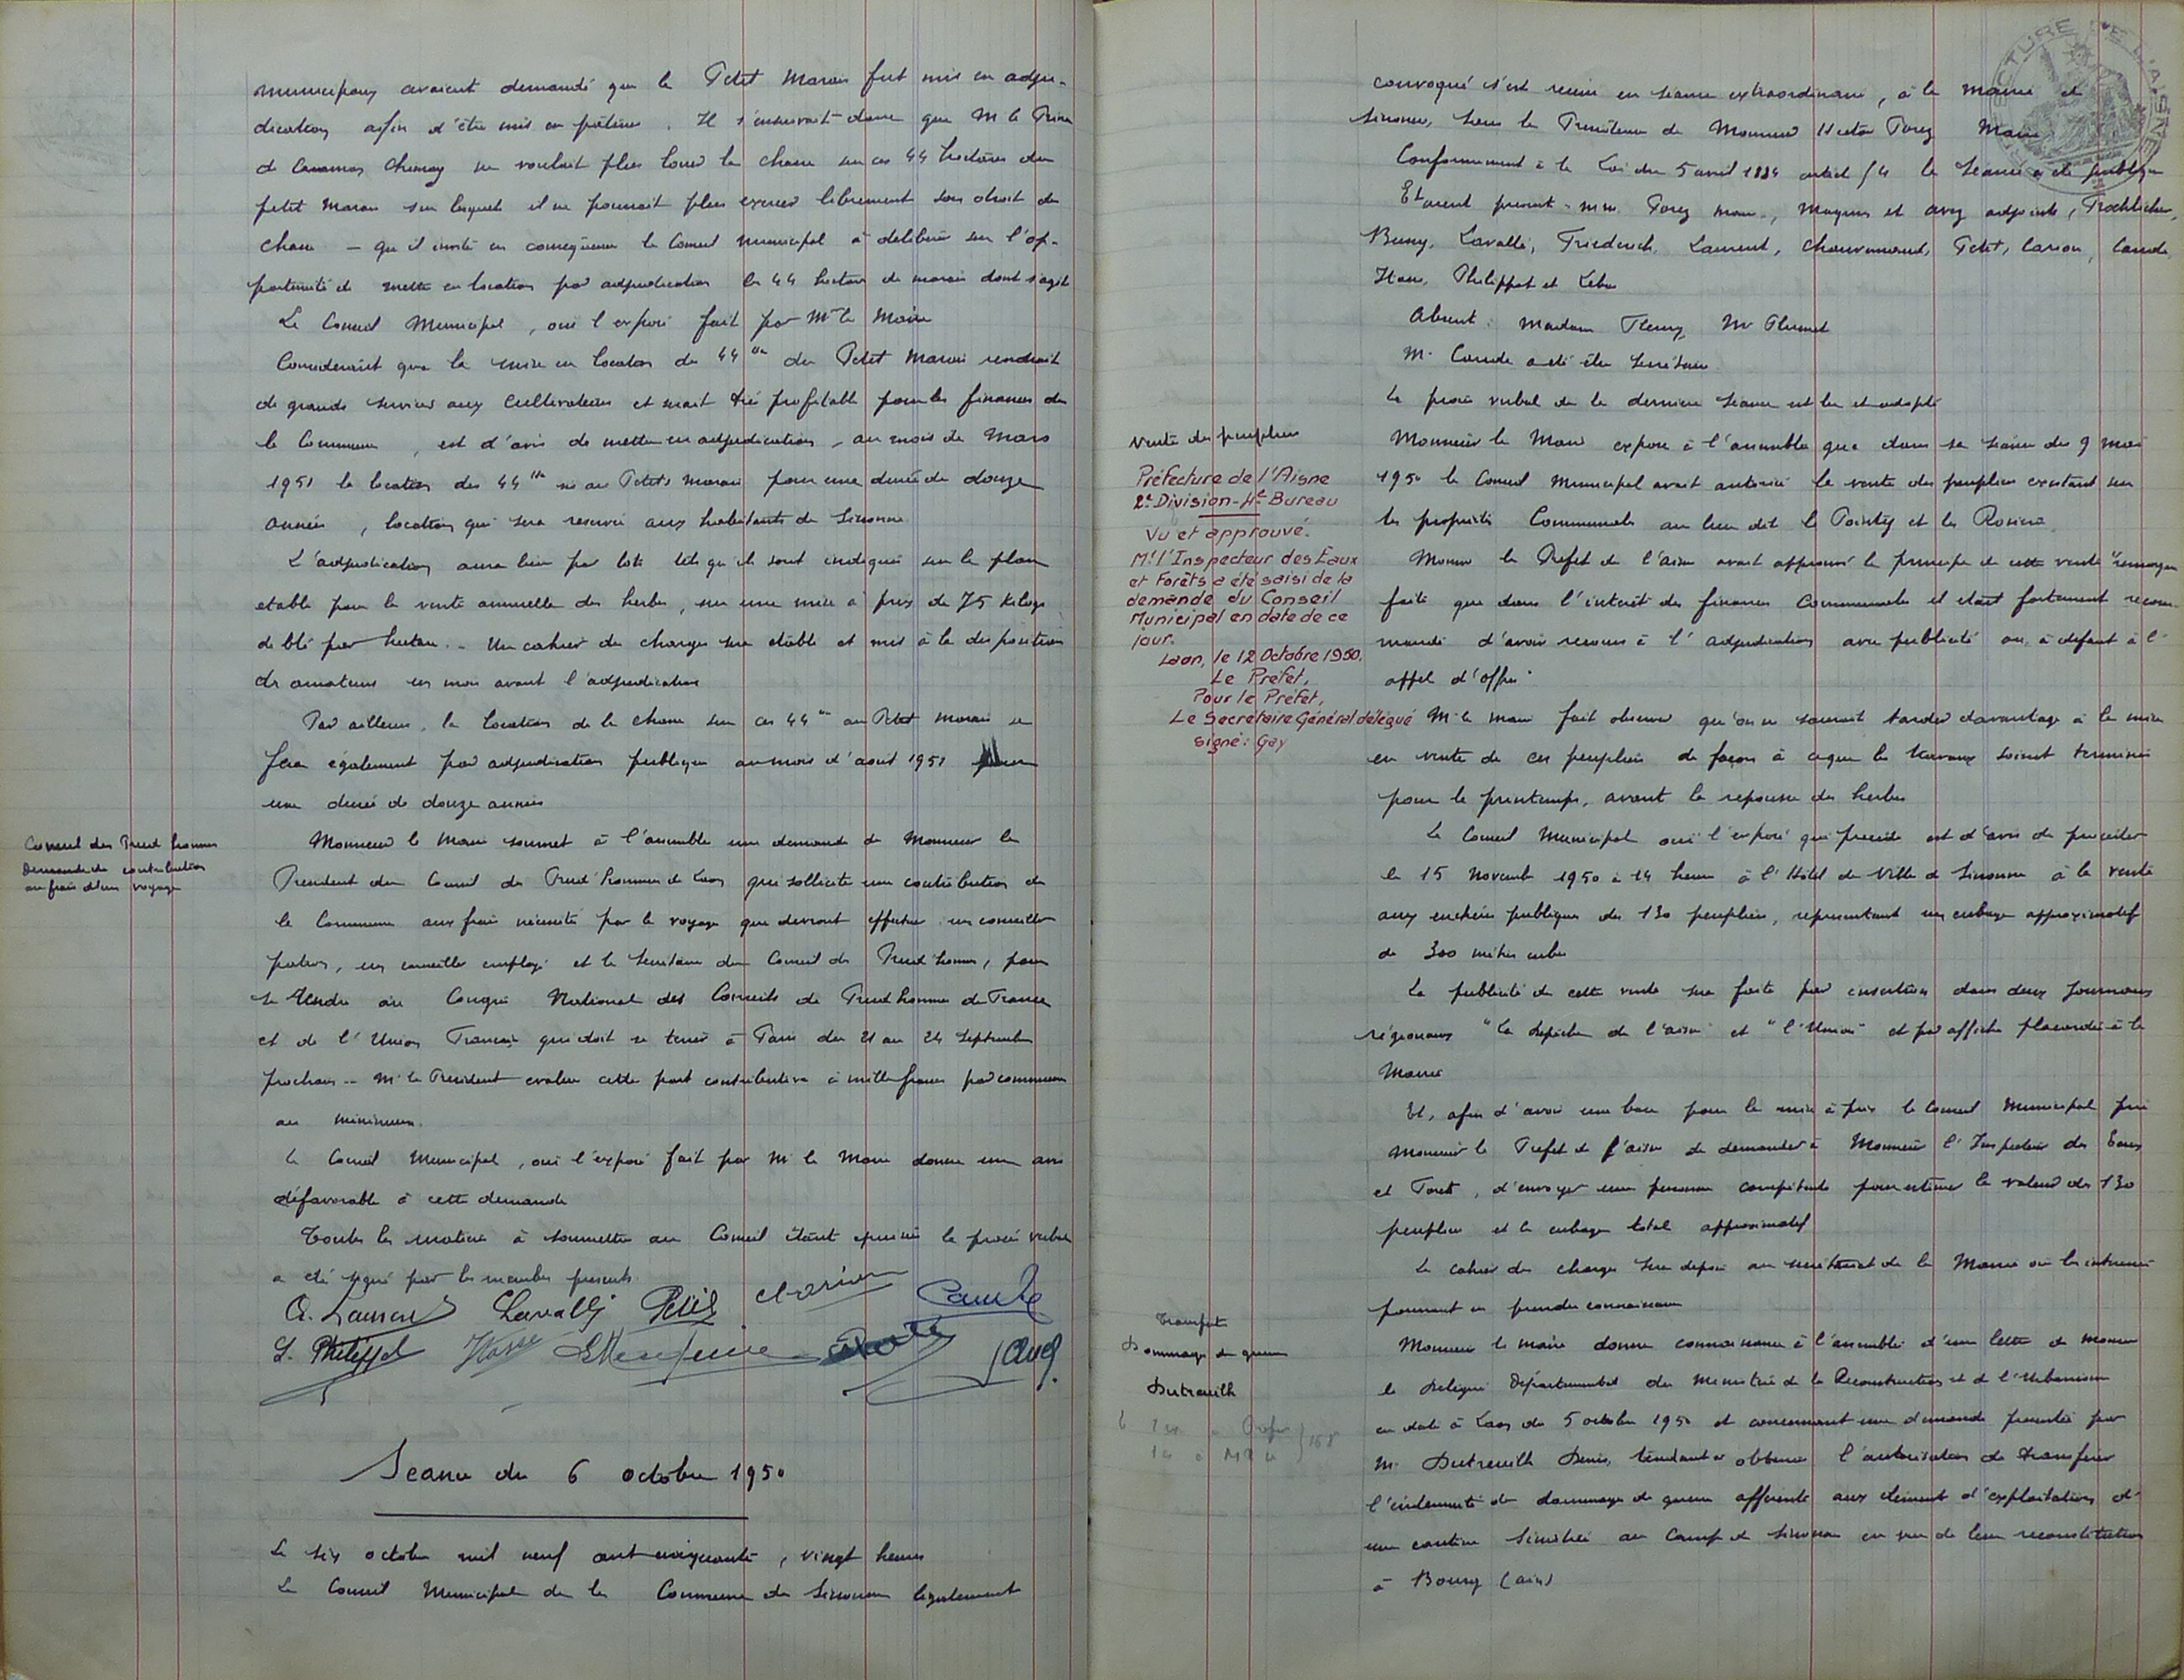 municipaux avaient demandé que le Petit Marais fut mis en adju-
dication afin d'être mis en pâtures. Il s'ensuivait donc que M le Prince
de Caraman Chimay ne voulait plus louer la chasse sur ces 44 hectares du
petit Marais sur lesquels il ne pourrait plus exercer librement son droit de
chasse - qu'il invite en conséquence le Conseil Municipal à délibérer sur l'op-
portunité de mettre en location par adjudication les 44 hectares de marais dont s'agit
Le Conseil Municipal, oui l'exposé fait par Mr le Maire
Considérant que la mise en location de 44 ha du Petit Marais rendrait
de grands services aux Cultivateurs et serait très profitable pour les finances de
la Commune, est d'avis de mettre en adjudication - au mois de Mars
1951 la location des 44 ha sis au Petits Marais pour une durée de douze
années, location qui sera réservée aux habitants de Sissonne
L'adjudication aura lieu par lots tels qu'ils sont indiqués sur le plan
établi pour la vente annuelle des herbes, sur une mise à prix de 75 kilogs
de blé par hectare. - Un cahier des charges sera établi et mis à la disposition
des amateurs un mois avant l'adjudication
Par ailleurs, la location de la chasse sur ces 44 ha au Petit Marais se
fera également par adjudication publique au mois d'août 1951 pour
une durée de douze années
Conseil des Prud'hommes
Demande de contribution
aux frais d'un voyage
Monsieur le Maire soumet à l'assemblée une demande de Monsieur le
Président du Conseil de Prud'hommes de Laon qui sollicite une contribution de
la Commune aux frais nécessités par le voyage que devront effectuer un conseiller
patron, un conseiller employé et le Secrétaire du Conseil de Prud'hommes, pour
se rendre au Congrès National des Conseils de Prud'hommes de France
et de l'Union Française qui doit se tenir à Paris du 21 au 24 Septembre
prochain -- M. le Président évalue cette part contributive à mille francs par commune
au minimum.
Le Conseil Municipal, oui l'exposé fait par M le Maire donne un avis
défavorable à cette demande
Toutes les matières à soumettre au Conseil étant épuisées le procès verbal
a été signé par les membres présents
A. Laurent Lavallé Petit Carion Caude
L. Philippot Hase Porez Avez
Séance du 6 octobre 1950
Le six octobre mil neuf cent cinquante, vingt heures
Le Conseil Municipal de la Commune de Sissonne légalement
convoqué s'est réuni en séance extraordinaire, à la Mairie de
Sissonne, sous la Présidence de Monsieur Hector Porez Maire
Conformément à la Loi du 5 avril 1884 article 54 la Séance a été publique
Etaient présents = MM. Porez Maire, et Avez adjoints,
Buny, Lavallé, Friederich, Laurent, Petit, Carion, Caude,
Hase, Philippot et
Absents: Madame Fleury, Mr Plumet
M. Caude a été élu Secrétaire
Le procès verbal de la dernière séance est lu et adopté
Vente des peupliers
Préfecture de l'Aisne
2e Division - 4e Bureau
Vu et approuvé.
Mr l'Inspecteur des Eaux
et Forêts a été saisi de la
demande du Conseil
Municipal en date de ce
jour.
Laon, le 12 Octobre 1950.
Le Préfet,
Pour le Préfet,
Le Secrétaire Général délégué
signé: Gay
Monsieur le Maire expose à l'assemblée que dans sa séance du 9 mai
1950 le Conseil Municipal avait autorisé la vente des peupliers existant sur
les propriétés Communales au lieu dit le Pointy et les Rosières
Monsieur le Préfet de l'Aisne avait approuvé le principe de cette vente "remarque
faite que dans l'intérêt des finances Communales il était fortement recom-
mandé d'avoir recours à l'adjudication avec publicité ou, à défaut à l'
appel d'offres"
M. le maire fait observer qu'on ne saurait tarder davantage à la mise
en vente de ces peupliers de façon à ce que les travaux soient terminés
pour le printemps, avant la repousse des herbes
Le Conseil Municipal ouï l'exposé qui précède est d'avis de procéder
le 15 Novembre 1950 à 14 heures à l'Hôtel de Ville de Sissonne à la vente
aux enchères publiques des 130 peupliers, représentant un cubage approximatif
de 300 mètres cubes
La publicité de cette vente sera faite par insertion dans deux Journaux
régionaux "La dépêche de l'Aisne" et "l'Union" et par affiches placardées à la
Mairie
Et, afin d'avoir une base pour la mise à prix le Conseil Municipal prie
Monsieur le Préfet de l'Aisne de demander à Monsieur l'Inspecteur des Eaux
et Forêts, d'envoyer une personne compétente pour estimer la valeur des 130
peupliers et le cubage total approximatif
Le cahier des charges sera déposé au secrétariat de la Mairie où les intéressés
pourront en prendre connaissance
Transfert
Dommages de guerre
Dutreuilh
Monsieur le maire donne connaissance à l'assemblée d'une lettre de Monsieur
le Délégué Départemental du Ministère de la Reconstruction et de l'Urbanisme
en date à Laon du 5 octobre 1950 et concernant une demande présentée par
M. Dutreuilh Denis, tendant à obtenir l'autorisation de transférer
l'indemnité de dommages de guerre afférente aux éléments d'exploitation d'
une cantine sinistrée au Camp de Sissonne en vue de leur reconstitution
à Bourg (Ain)